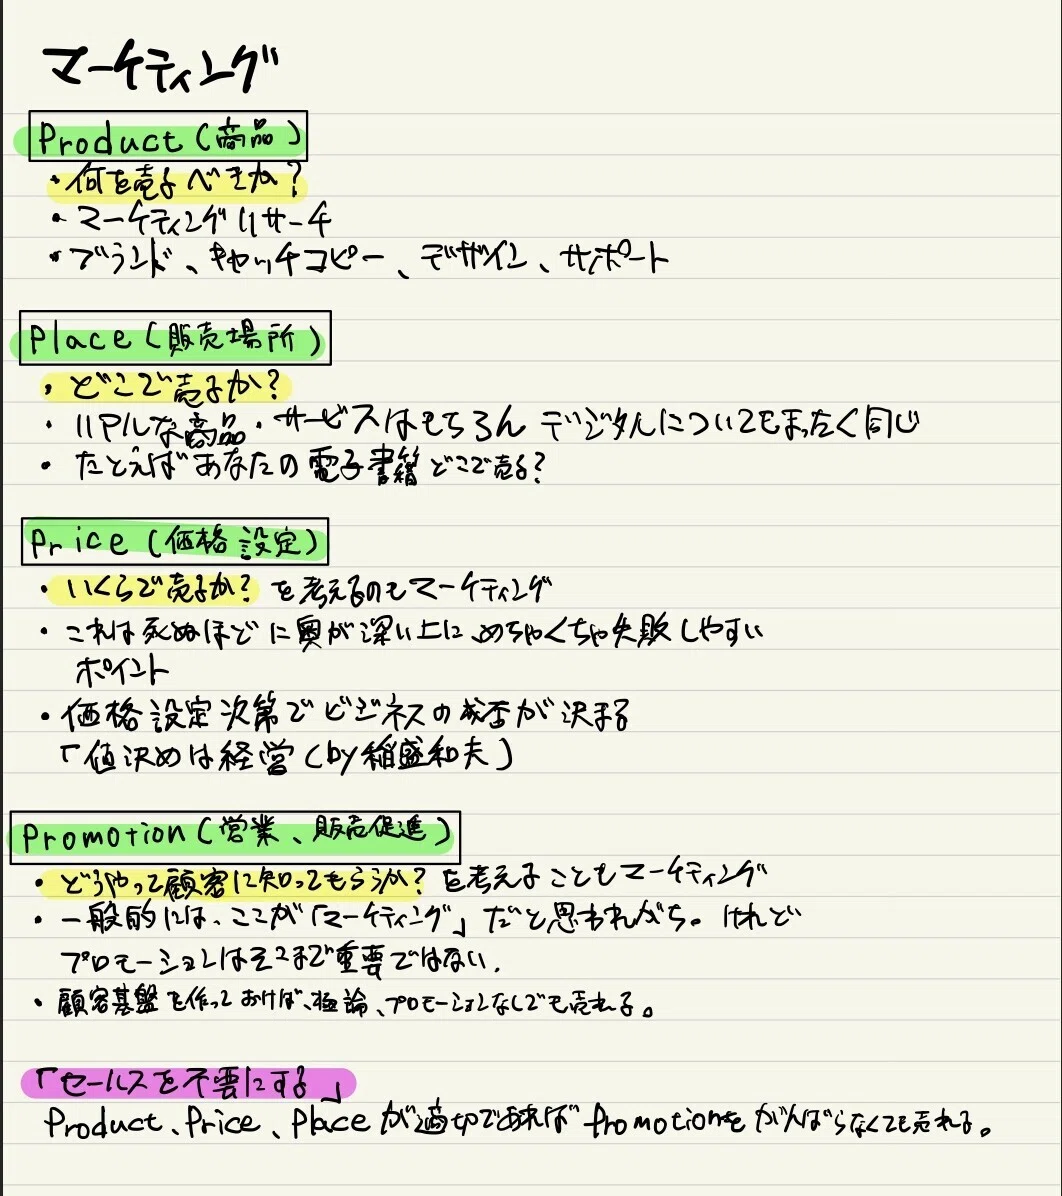 マーケティング
Product(商品)
・何を売るべきか?
・マーケティングリサーチ
・ブランド、キャッチコピー、デザイン、サポート
Place(販売場所)
・どこで売るか?
・リアルな商品・サービスはもちろんデジタルについてもまったく同じ
・たとえばあなたの電子書籍どこで売る?
Price(価格設定)
・いくらで売るか?を考えるのもマーケティング
・これは死ぬほどに奥が深い上に、めちゃくちゃ失敗しやすい
ポイント
・価格設定次第でビジネスの成否が決まる
「値決めは経営(by稲盛和夫」
Promotion(営業、販売促進)
・どうやって顧客に知ってもらうか?を考えることもマーケティング
・一般的には、ここが「マーケティング」だと思われがち。けれど
プロモーションはそこまで重要ではない。
・顧客基盤を作っておけば、極論、プロモーションなしでも売れる。
「セールスを不要にする」
Product、Price、Placeが適切であればPromotionをがんばらなくても売れる。